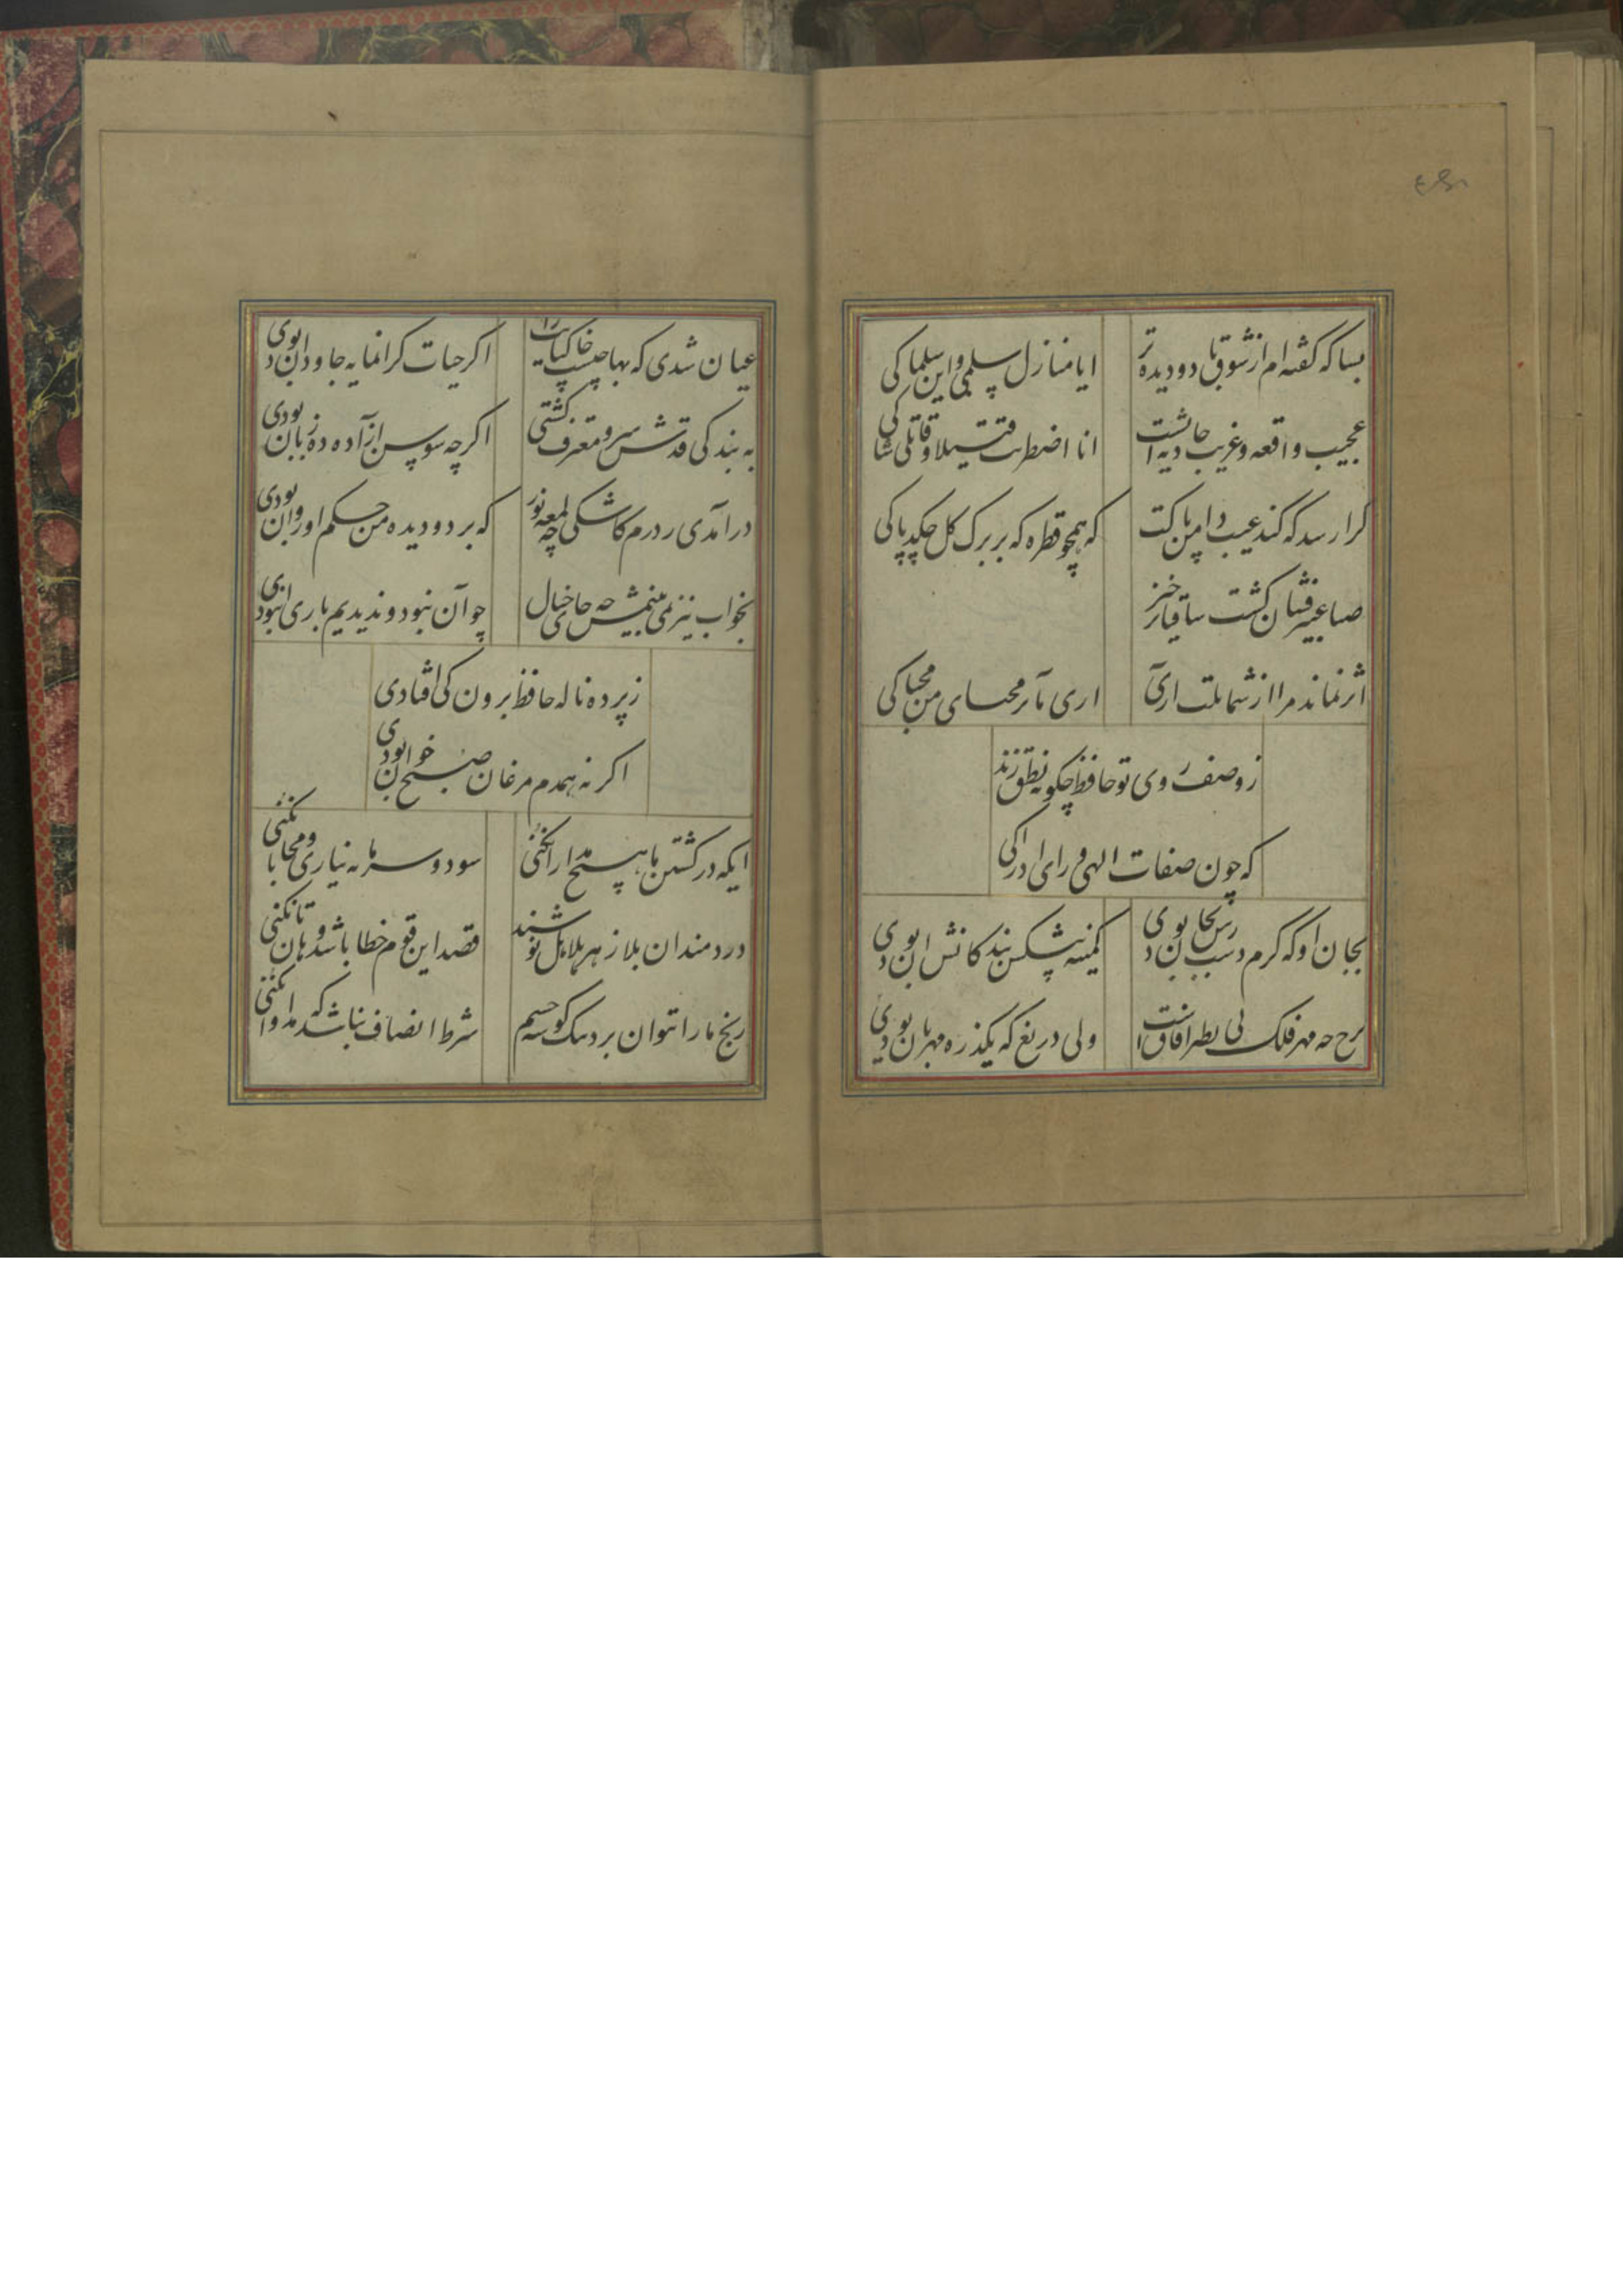 بسا که گفته ام از شوق با دو دیده تر
ایا منازل سلمی و این سلماکی
عجیب واقعه و غریب حادثه ایست
انا اضطربت قتیلا و قاتلی شاکی
کرا رسد که کند عیب دامن پاکت
که همچو قطره که بر برک کل چکد پاکی
صبا عبیر فشان کشت ساقیا برخیز
اثر نماند مرا از شمایلت آری
اری مآثر محیای من محیاکی
ز وصف روی تو حافظ چکونه نطق زند
که چون صفات الهی ورای ادراکی
بجان او که کرم دسترس بجان بودی
کمینه پیشکش بندکانش ان بودی
برخ چه مهر فلک بی نظیر افاق است
ولی دریغ که یکذره مهربان بودی
عیان شدی که بها چیست خاکپایت را
اکر حیات کرانمایه جاودان بودی
به بندکی قدش سرو معترف کشتی
اکرچه سوسن ازاده ده زبان بودی
درآمدی ز درم کاشکی چه لمعه نور
که بر دو دیده من حکم او روان بودی
بخواب نیز نمی بینمش چه جای خیال
چو آن نبود و ندیدیم باری ان بودی
ز پرده ناله حافظ برون کی افتادی
اکر نه همدم مرغان صبح خوان بودی
ایکه در کشتن ما هیچ مدارا نکنی
سود و سرمایه نیاری و محابا نکنی
دردمندان بلا زهر هلاهل نوشند
قصد این قوم خطا باشد و هان تا نکنی
رنج ما را توان برد بیک کوشه چشم
شرط انصاف نباشد که مداوا نکنی